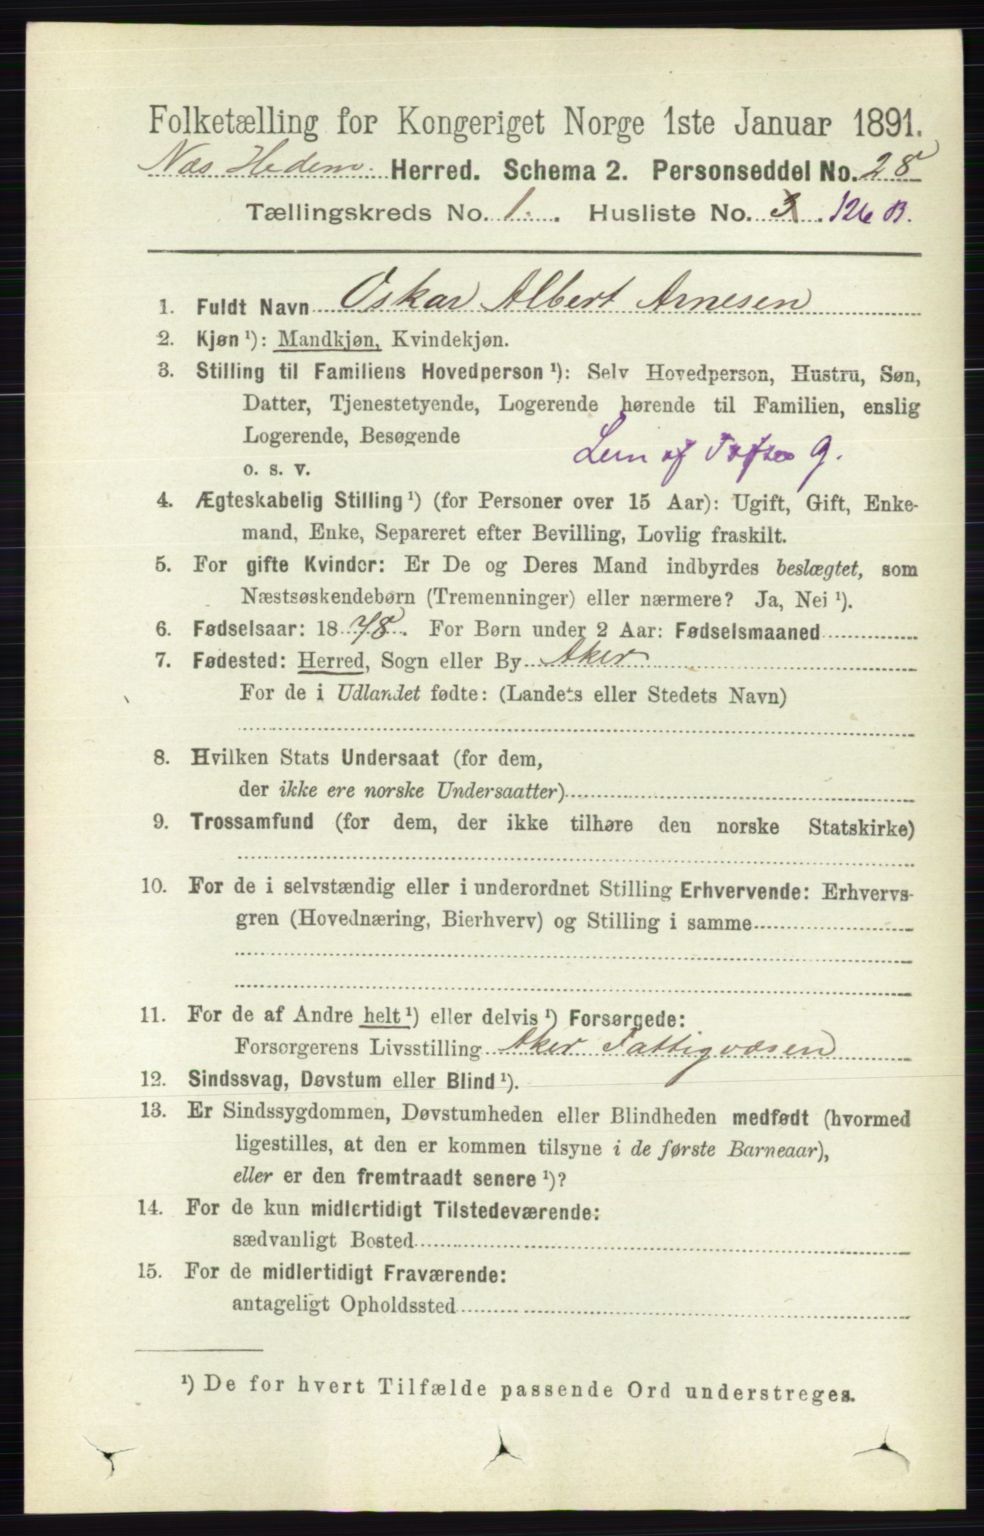 Folketælling for Kongeriget Norge 1ste Januar 1891.
Næs Hedem. Herred. Schema 2. Personseddel No. 28
Tællingskreds No. 1. Husliste No. 3 126 B.
1. Fuldt Navn Oskar Albert Arnesen
2. Kjøn ¹): Mandkjøn, Kvindekjøn.
3. Stilling til Familiens Hovedperson ¹): Selv Hovedperson, Hustru, Søn,
Datter, Tjenestetyende, Logerende hørende til Familien, enslig
Logerende, Besøgende
o. s. v. Lem af G.
4. Ægteskabelig Stilling ¹) (for Personer over 15 Aar): Ugift, Gift, Enke-
mand, Enke, Separeret efter Bevilling, Lovlig fraskilt.
5. For gifte Kvinder: Er De og Deres Mand indbyrdes beslægtet, som
Næstsøskendebørn (Tremenninger) eller nærmere? Ja, Nei ¹).
6. Fødselsaar: 1878. For Børn under 2 Aar: Fødselsmaaned
7. Fødested: Herred, Sogn eller By Aker
For de i Udlandet fødte: (Landets eller Stedets Navn)
8. Hvilken Stats Undersaat (for dem,
der ikke ere norske Undersaatter)
9. Trossamfund (for dem, der ikke tilhøre den norske Statskirke)
10. For de i selvstændig eller i underordnet Stilling Erhvervende: Erhvervs-
gren (Hovednæring, Bierhverv) og Stilling i samme
11. For de af Andre helt ¹) eller delvis ¹) Forsørgede:
Forsørgerens Livsstilling Aker Fattigvæsen
12. Sindssvag, Døvstum eller Blind ¹).
13. Er Sindssygdommen, Døvstumheden eller Blindheden medfødt (hvormed
ligestilles, at den er kommen tilsyne i de første Barneaar),
eller er den fremtraadt senere ¹)?
14. For de kun midlertidigt Tilstedeværende:
sædvanligt Bosted
15. For de midlertidigt Fraværende:
antageligt Opholdssted
¹) De for hvert Tilfælde passende Ord understreges.